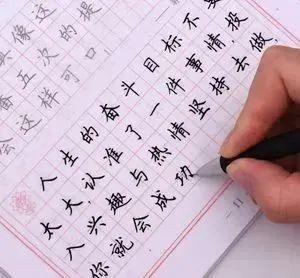 像这的提
奋五次的
会这样可口,
人生的奋斗目标不要
太大,认准了一件事情,投
入兴趣与热情坚持去做,
你就会成功
11